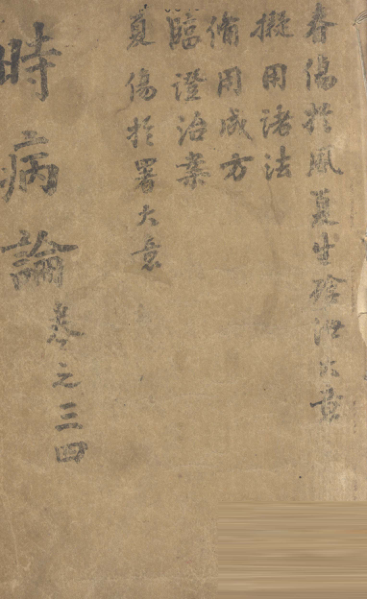 春傷於風夏生飱泄大意
擬用諸法
備用成方
臨證治案
夏傷於暑大意
時病論
卷之三四